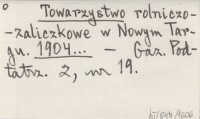 o
Towarzystwo rolniczo-
-zaliczkowe w Nowym Tar-
gu. 1904... — Gaz. Pod-
tatrz. 2, nr 19.